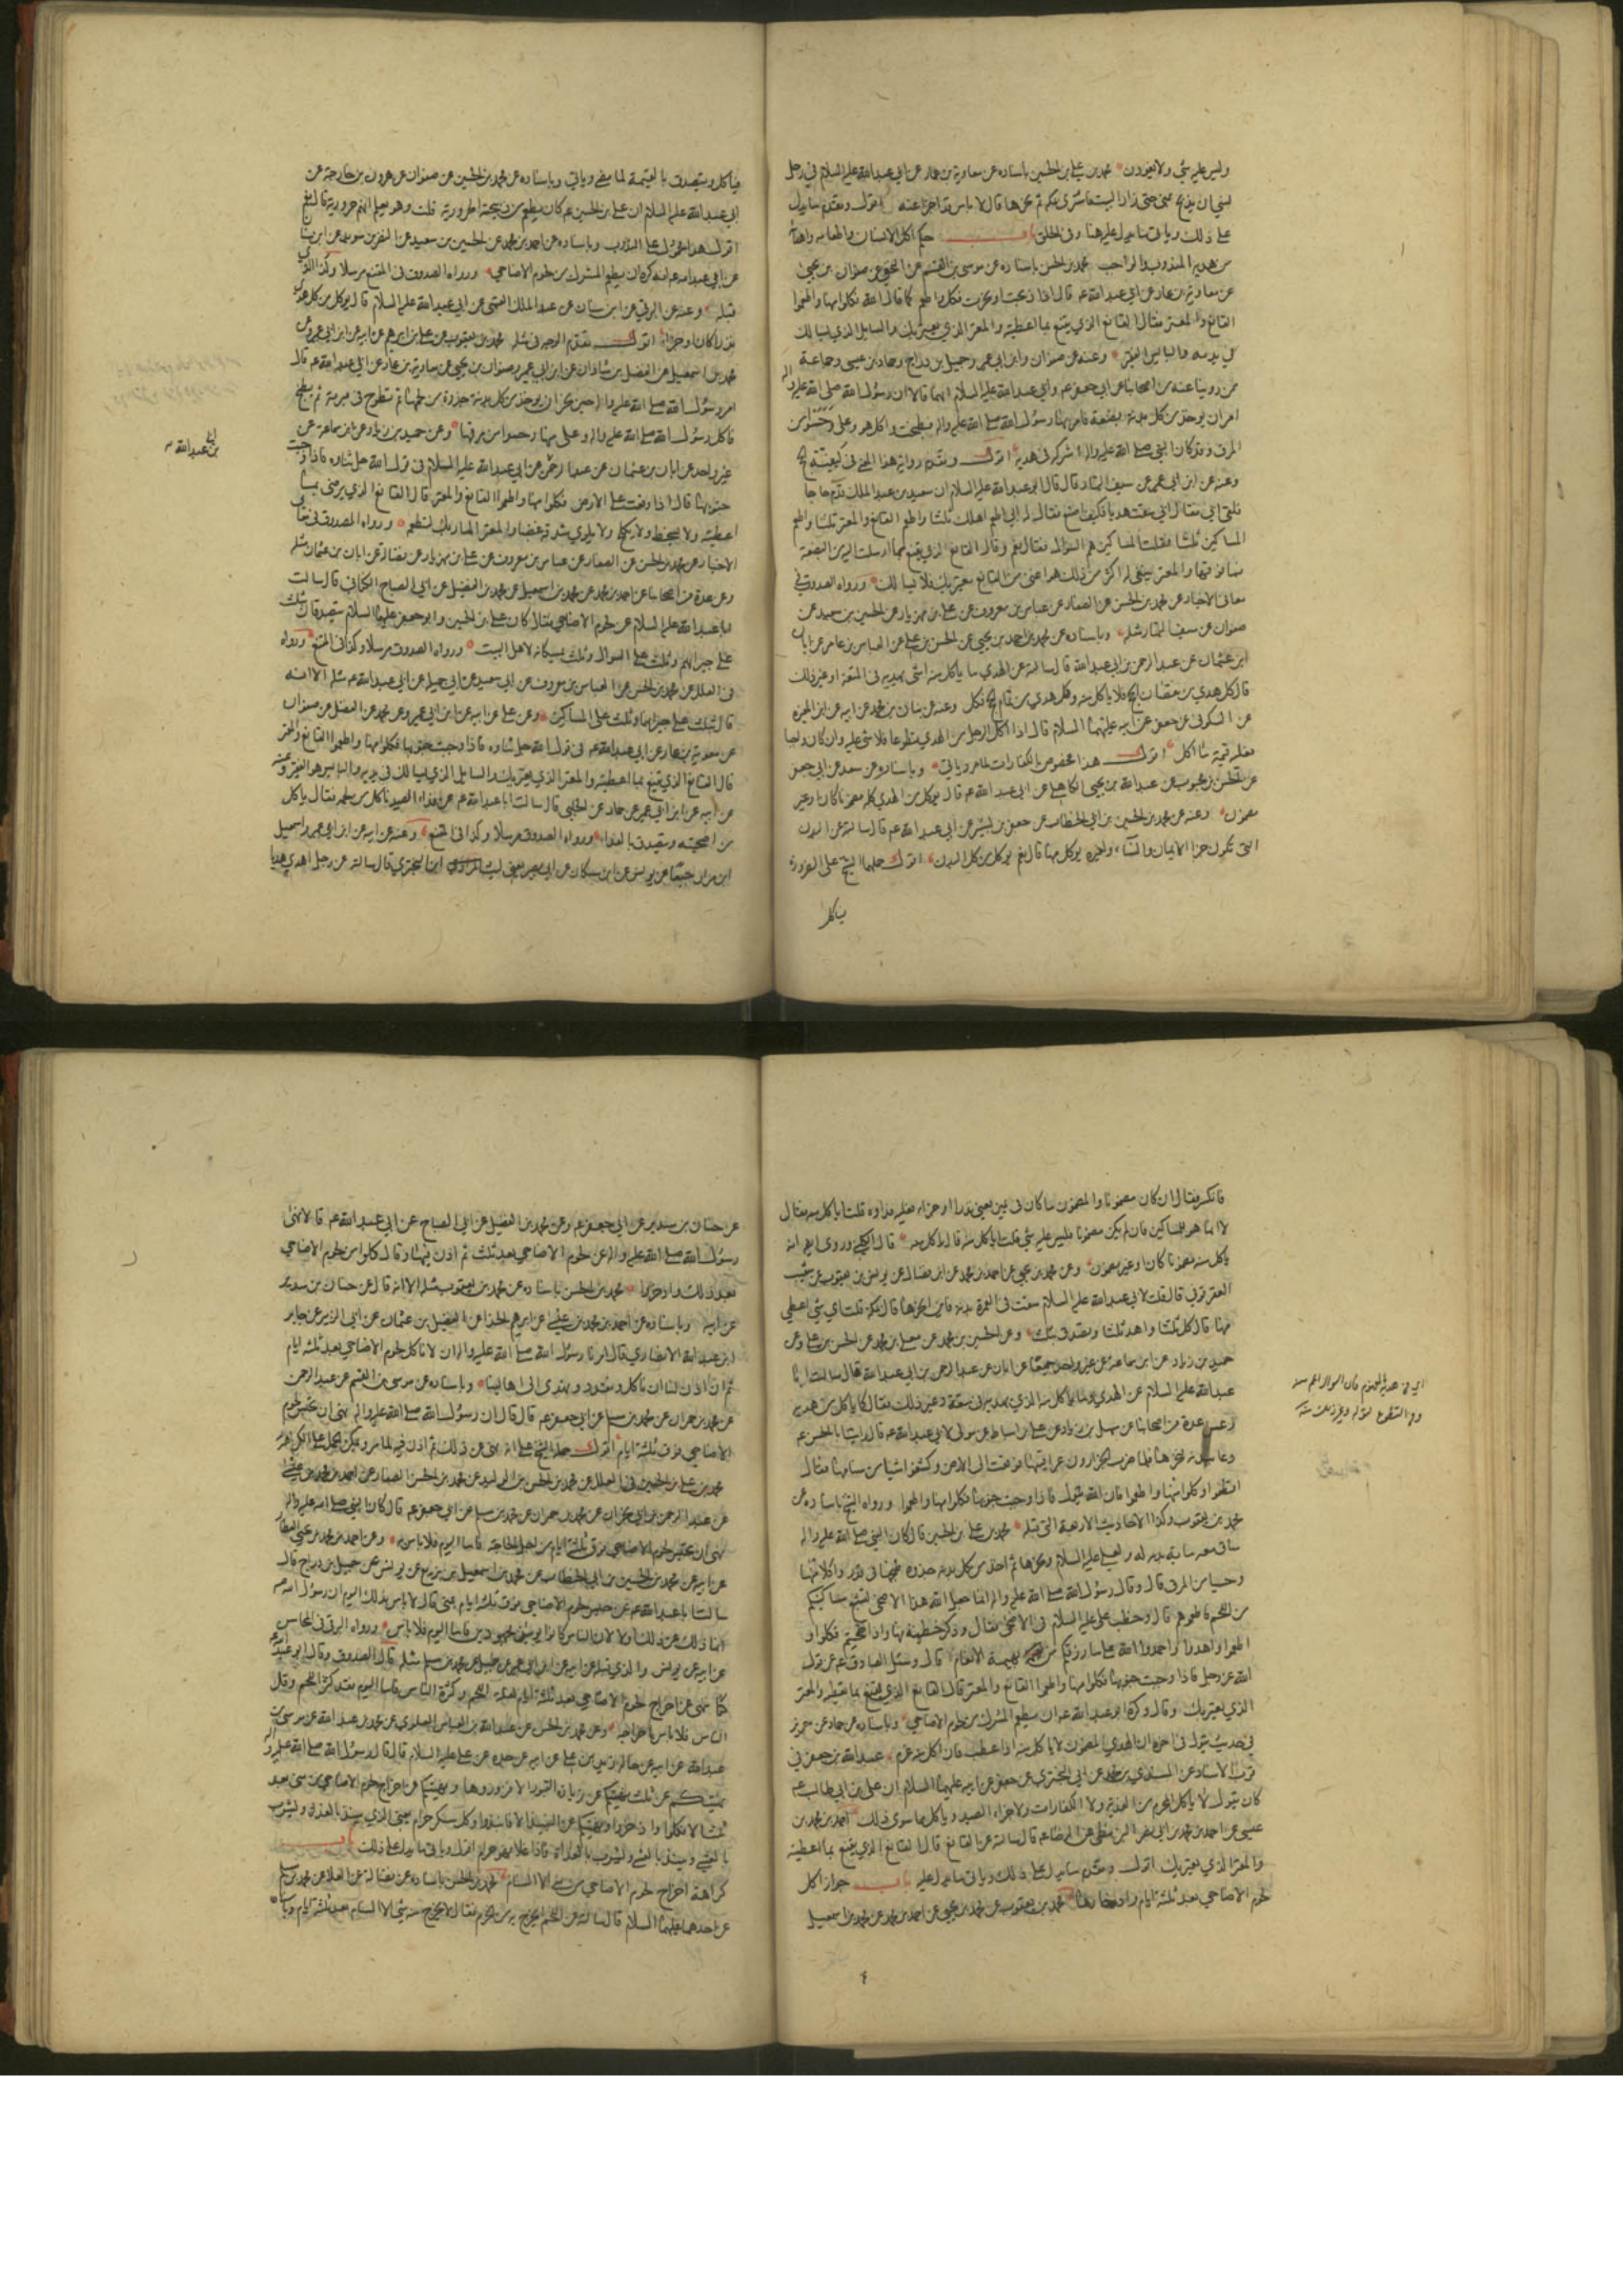 وليس عليه شي ولا يعيدون محمد بن علي بن الحسين باسناده عن معاوية بن عمار عن ابي عبد الله عليه السلام في رجل
نسي ان يذبح بمنى حتى زار البيت فاشترى بمكة ثم نحرها قال لا باس قد اجزا عنه اقول وتقدم ما يدل
على ذلك وياتي ما يدل عليه هنا وفي الحلق باب حكم اكل الانسان واطعامه واهدائه
من هديه المندوب والواجب محمد بن الحسن باسناده عن موسى بن القسم عن النخعي عن صفوان بن يحيى
عن معاوية بن عمار عن ابي عبد الله عه قال اذا ذبحت او نحرت فكل واطعم كما قال الله فكلوا منها واطعموا
القانع والمعتر فقال القانع الذي يقنع بما اعطيته والمعتر الذي يعتريك والسايل الذي يسالك
في يديه والبايس الفقير وعنه عن صفوان وابن ابي عمير وجميل بن دراج وحماد بن عيسى وجماعة
ممن روينا عنه من اصحابنا عن ابي جعفر عه وابي عبد الله عليه السلام انهما قالا ان رسول الله صلى الله عليه واله
امر ان يوخذ من كل بدنة بضعة فامر بها رسول الله صلى الله عليه واله فطبخت واكل هو وعلي وحسوا من
المرق وقد كان النبي صلى الله عليه واله اشركه في هديه اقول وتقدم رواية هذا المعنى في كيفية الحج
وعنه عن ابن ابي عمير عن سيف التمار قال قال ابو عبد الله عليه السلام ان سعيد بن عبد الملك قدم حاجا
فلقي ابي فقال اني سقت هديا فكيف اصنع فقال له ابي اطعم اهلك ثلثا واطعم القانع والمعتر ثلثا واطعم
المساكين ثلثا فقلت المساكين هم السؤال فقال نعم وقال القانع الذي يقنع بما ارسلت اليه من البضعة
فما فوقها والمعتر ينبغي له اكثر من ذلك هو اغنى من القانع يعتريك فلا يسالك ورواه الصدوق في
معاني الاخبار عن محمد بن الحسن عن الصفار عن عباس بن معروف عن علي بن مهزيار عن الحسين بن سعيد عن
صفوان عن سيف التمار مثله وباسناده عن محمد بن احمد بن يحيى عن الحسن بن علي عن العباس بن عامر عن ابان
ابن عثمان عن عبد الرحمن بن ابي عبد الله قال سالته عن الهدي ما ياكل منه اشي يهديه في المتعة او غير ذلك
قال كل هدي من نقصان الحج فلا ياكل منه وكل هدي من تمام الحج فكل وعنه عن بنان بن محمد عن ابيه عن ابن المغيرة
عن السكوني عن جعفر عن ابيه عليهما السلام قال اذا اكل الرجل من الهدي تطوعا فلا شي عليه وان كان واجبا
فعليه قيمة ما اكل اقول هذا مخصوص بالكفارات لما مر وياتي وباسناده عن سعد عن ابي جعفر
عن الحسن بن محبوب عن عبد الله بن يحيى الكاهلي عن ابي عبد الله عه قال يوكل من الهدي كله مضمونا كان او غير
مضمون وعنه عن محمد بن الحسين بن ابي الخطاب عن جعفر بن بشير عن ابي عبد الله عه قال سالته عن البدن
التي تكون جزا الايمان والنساء ولغيره يوكل منها قال نعم يوكل من كل البدن اقول حملها الشيخ على الضرورة
فياكل
فياكل ويتصدق بالقيمة لما مضى وياتي وباسناده عن محمد بن الحسين عن صفوان عن هرون بن خارجة عن
ابي عبد الله عليه السلام ان علي بن الحسين عه كان يطعم من ذبيحته الحرورية قلت وهو يعلم انهم حرورية قال نعم
اقول هذا محمول على المندوب وباسناده عن احمد بن محمد عن الحسين بن سعيد عن النضر بن سويد عن ابن سنان
عن ابي عبد الله عه انه كره ان يطعم المشرك من لحوم الاضاحي ورواه الصدوق في المقنع مرسلا وكذا الذي
قبله وعنه عن البرقي عن ابن سنان عن عبد الملك القمي عن ابي عبد الله عليه السلام قال يوكل من كل هدي
نذرا كان او جزاء اقول تقدم الوجه في مثله محمد بن يعقوب عن علي بن ابراهيم عن ابيه عن ابن ابي عمير وعن
محمد بن اسمعيل عن الفضل بن شاذان عن ابن ابي عمير وصفوان بن يحيى عن معاوية بن عمار عن ابي عبد الله عه قال
امر رسول الله صلى الله عليه واله حين نحر ان يوخذ من كل بدنة جذوة من لحمها ثم تطرح في برمة ثم يطبخ
فاكل رسول الله صلى الله عليه واله وعلي منها وحسوا من مرقها وعن حميد بن زياد عن ابن سماعة عن
غير واحد عن ابان بن عثمان عن عبد الرحمن عن ابي عبد الله عليه السلام في قول الله جل ثناوه فاذا وجبت
جنوبها قال اذا وقعت على الارض فكلوا منها واطعموا القانع والمعتر قال القانع الذي يرضى بما
اعطيته ولا يسخط ولا يكلح ولا يلوي شدقه غضبا والمعتر المار بك لتطعمه ورواه الصدوق في معاني
الاخبار عن محمد بن الحسن عن الصفار عن عباس بن معروف عن علي بن مهزيار عن فضالة عن ابان بن عثمان مثله
وعن عدة من اصحابنا عن احمد بن محمد عن محمد بن اسمعيل عن محمد بن الفضيل عن ابي الصباح الكناني قال سالت
ابا عبد الله عليه السلام عن لحوم الاضاحي فقال كان علي بن الحسين وابو جعفر عليهما السلام يتصدقان بثلث
على جيرانهم وثلث على السوال وثلث يمسكانه لاهل البيت ورواه الصدوق مرسلا وكذا في المقنع ورواه
في العلل عن محمد بن الحسن عن العباس بن معروف عن ابي سعيد عن ابي جميلة عن ابي عبد الله عه مثله الا انه
قال بثلث على جيرانهما وثلث على المساكين وعن علي عن ابيه عن ابن ابي عمير وعن محمد عن الفضل عن صفوان
عن معوية بن عمار عن ابي عبد الله عه في قول الله جل ثناوه فاذا وجبت جنوبها فكلوا منها واطعموا القانع والمعتر
قال القانع الذي يقنع بما اعطيته والمعتر الذي يعتريك والسايل الذي يسالك في يديه والبايس هو الفقير وعنه
عن ابيه عن ابن ابي عمير عن حماد عن الحلبي قال سالت ابا عبد الله عه عن فداء الصيد ياكل من لحمه فقال ياكل
من اضحيته ويتصدق بالفداء ورواه الصدوق مرسلا وكذا في المقنع وعنه عن ابيه عن ابن ابي عمير واسمعيل
ابن مرار جميعا عن يونس عن ابن مسكان عن ابي بصير يعني ليث المرادي ابن البختري قال سالته عن رجل اهدى هديا
بن عبد الله
فانكسر فقال ان كان مضمونا والمضمون ما كان في يمين يعني نذرا او جزاء فعليه فداوه قلت اياكل منه فقال
لا انما هو للمساكين فان لم يكن مضمونا فليس عليه شي قلت اياكل منه قال ياكل منه قال الكليني وروي ايضا انه
ياكل منه مضمونا كان او غير مضمون وعن محمد بن يحيى عن احمد بن محمد عن ابن فضال عن يونس بن يعقوب عن شعيب
العقرقوفي قال قلت لابي عبد الله عليه السلام سقت في العمرة بدنة فاين انحرها قال بمكة قلت اي شي اعطي
منها قال كل ثلثا واهد ثلثا وتصدق بثلث وعن الحسين بن محمد عن معلى بن محمد عن الحسن بن علي وعن
حميد بن زياد عن ابن سماعة عن غير واحد جميعا عن ابان عن عبد الرحمن بن ابي عبد الله قال سالت ابا
عبد الله عليه السلام عن الهدي ما ياكل منه الذي يهديه في متعة وغير ذلك فقال كما ياكل من هديه
وعن عدة من اصحابنا عن سهل بن زياد عن علي بن اسباط عن مولى لابي عبد الله عه قال رايت ابا الحسن عه
دعا ببدنة فنحرها فلما ضرب الجزارون عراقيبها فوقعت الى الارض وكشفوا شيا من سنامها فقال
اقطعوا وكلوا منها واطعموا فان الله يقول فاذا وجبت جنوبها فكلوا منها واطعموا ورواه الشيخ باسناده عن
محمد بن يعقوب وكذا الاحاديث الاربعة التي قبله محمد بن علي بن الحسين قال كان النبي صلى الله عليه واله
ساق معه ماية بدنة له ولعلي عليه السلام ونحرها ثم اخذ من كل بدنة جذوة طبخها في قدر واكلا منها
وحسيا من المرق قال وقال رسول الله صلى الله عليه واله انما جعل الله هذا الاضحى لتشبع مساكينكم
من اللحم فاطعموهم قال وخطب علي عليه السلام في الاضحى فقال وذكر خطبة منها واذا ضحيتم فكلوا و
اطعموا واهدوا واحمدوا الله على ما رزقكم من بهيمة الانعام قال وسئل الصادق عه عن قول
الله عز وجل فاذا وجبت جنوبها فكلوا منها واطعموا القانع والمعتر قال القانع الذي يقنع بما تعطيه والمعتر
الذي يعتريك وقال وكره ابو عبد الله عه ان يطعم المشرك من لحوم الاضاحي وباسناده عن حماد عن حريز
في حديث يقول في اخره ان الهدي المضمون لا ياكل منه اذا عطب فان اكل منه غرم عبد الله بن جعفر في
قرب الاسناد عن السندي بن محمد عن ابي البختري عن جعفر عن ابيه عليهما السلام ان علي بن ابي طالب عه
كان يقول لا ياكل المحرم من الفدية ولا الكفارات ولا جزاء الصيد وياكل ما سوى ذلك احمد بن محمد بن
عيسى عن احمد بن محمد بن ابي نصر البزنطي عن الرضا عه قال سالته عن القانع قال القانع الذي يقنع بما اعطيته
والمعتر الذي يعتريك اقول وتقدم ما يدل على ذلك وياتي ما يدل عليه باب جواز اكل
لحوم الاضاحي بعد ثلثة ايام وادخارها محمد بن يعقوب عن محمد بن يحيى عن احمد بن محمد عن محمد بن اسمعيل
عن حنان بن سدير عن ابي جعفر عه وعن محمد بن الفضيل عن ابي الصباح عن ابي عبد الله عه قالا نهى
رسول الله صلى الله عليه واله عن لحوم الاضاحي بعد ثلث ثم اذن فيها وقال كلوا من لحوم الاضاحي
بعد ذلك وادخروا محمد بن الحسن باسناده عن محمد بن يعقوب مثله الا انه قال عن حنان بن سدير
عن ابيه وباسناده عن احمد بن محمد بن عيسى عن ابراهيم الحذا عن الفضيل بن عثمان عن ابي الزبير عن جابر
ابن عبد الله الانصاري قال امرنا رسول الله صلى الله عليه واله ان لا ناكل لحوم الاضاحي بعد ثلثة ايام
ثم اذن لنا ان ناكل ونقدد ونهدي الى اهالينا وباسناده عن موسى بن القسم عن عبد الرحمن
عن محمد بن حمران عن محمد بن مسلم عن ابي جعفر عه قال قال ان رسول الله صلى الله عليه واله نهى ان تحبس لحوم
الاضاحي فوق ثلثة ايام اقول حمله الشيخ على انه نهى عن ذلك ثم اذن فيه لما مر ويمكن الحمل على الكراهة
محمد بن علي بن الحسين في العلل عن محمد بن الحسن بن الوليد عن محمد بن الحسن الصفار عن احمد بن محمد بن عيسى
عن عبد الرحمن بن ابي نجران عن محمد بن حمران عن محمد بن مسلم عن ابي جعفر عه قال كان النبي صلى الله عليه واله
نهى ان تحبس لحوم الاضاحي فوق ثلثة ايام من اجل الحاجة فاما اليوم فلا باس به وعن احمد بن محمد بن يحيى العطار
عن ابيه عن محمد بن الحسين بن ابي الخطاب عن محمد بن اسمعيل بن بزيع عن يونس عن جميل بن دراج قال
سالت ابا عبد الله عه عن حبس لحوم الاضاحي فوق ثلثة ايام بمنى قال لا باس بذلك اليوم ان رسول الله صه
انما قال ذلك اولا لان الناس كانوا يومئذ مجهودين فاما اليوم فلا باس ورواه البرقي في المحاسن
عن ابيه عن يونس والذي قبله عن ابيه عن ابن ابي عمير عن جميل عن محمد بن مسلم مثله قال الصدوق وقال ابو عبد الله عه
كنا ننهى عن اخراج لحوم الاضاحي بعد ثلثة ايام لقلة اللحم وكثرة الناس فاما اليوم فقد كثر اللحم وقل
الناس فلا باس باخراجه وعن محمد بن الحسن عن عبد الله بن العباس العلوي عن محمد بن عبد الله عن موسى بن
عبد الله عن ابيه عن خاله زيد بن علي عن ابيه عن جده عن علي عليه السلام قال قال رسول الله صلى الله عليه واله
نهيتكم عن ثلث نهيتكم عن زيارة القبور الا فزوروها ونهيتكم عن اخراج لحوم الاضاحي من منى بعد
ثلث الا فكلوا وادخروا ونهيتكم عن النبيذ الا فانبذوا وكل مسكر حرام يعني الذي ينبذ بالغداة ويشرب
بالعشي وينبذ بالعشي ويشرب بالغداة فاذا غلا فهو حرام اقول وياتي ما يدل على ذلك باب
كراهة اخراج لحوم الاضاحي من منى الا السنام محمد بن الحسن باسناده عن فضالة عن العلا عن محمد بن مسلم
عن احدهما عليهما السلام قال سالته عن اللحم ايخرج به من الحرم فقال لا يخرج منه شي الا السنام بعد ثلثة ايام وباسناده